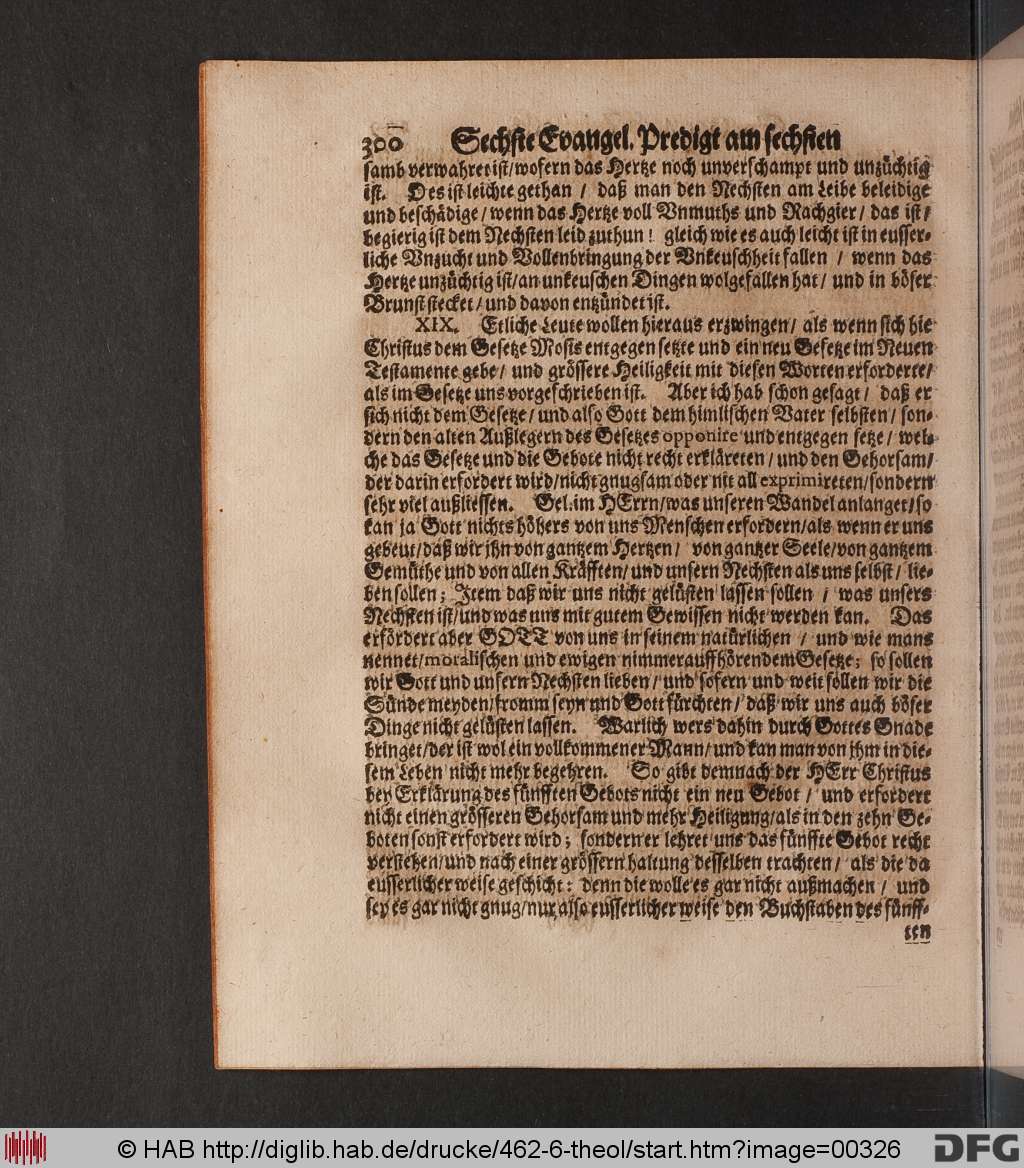 300 Sechste Evangel. Predigt am sechsten
samb verwahret ist/ wofern das Hertze noch unverschampt und unzüchtig
ist. Des ist leichte gethan / daß man den Nechsten am Leibe beleidige
und beschädige / wenn das Hertze voll Vnmuths und Rachgier / das ist /
begierig ist dem Nechsten leid zuthun! gleich wie es auch leicht ist in eusser-
liche Vnzucht und Vollenbringung der Vnkeuschheit fallen / wenn das
Hertze unzüchtig ist/ an unkeuschen Dingen wolgefallen hat / und in böser
Brunst stecket / und davon entzündet ist.
XIX. Etliche Leute wollen hieraus erzwingen/ als wenn sich hie
Christus dem Gesetze Mosis entgegen setzte und ein neu Gesetze im Neuen
Testamente gebe / und grössere Heiligkeit mit diesen Worten erforderte/
als im Gesetze uns vorgeschrieben ist. Aber ich hab schon gesagt / daß er
sich nicht dem Gesetze / und also Gott dem himlischen Vater selbsten / son-
dern den alten Außlegern des Gesetzes opponire und entgegen setze / wel-
che das Gesetze und die Gebote nicht recht erkläreten / und den Gehorsam/
der darin erfordert wird/ nicht gnugsam oder nit all exprimireten/ sondern
sehr viel außliessen. Gel. im HErrn/ was unseren Wandel anlanget/ so
kan ja Gott nichts höhers von uns Menschen erfordern/ als wenn er uns
gebeut/ daß wir jhn von gantzem Hertzen / von gantzer Seele/ von gantzem
Gemüthe und von allen Kräfften/ und unsern Nechsten als uns selbst / lie-
ben sollen; Jtem daß wir uns nicht gelüsten lassen sollen / was unsers
Nechsten ist/ und was uns mit gutem Gewissen nicht werden kan. Das
erfordert aber GOTT von uns in seinem natürlichen / und wie mans
nennet/ moralischen und ewigen nimmerauffhörendem Gesetze; so sollen
wir Gott und unsern Nechsten lieben / und sofern und weit sollen wir die
Sünde meyden/ fromm seyn und Gott fürchten / daß wir uns auch böser
Dinge nicht gelüsten lassen. Warlich wers dahin durch Gottes Gnade
bringet/ der ist wol ein vollkommener Mann/ und kan man von jhm in die-
sem Leben nicht mehr begehren. So gibt demnach der HErr Christus
bey Erklärung des fünfften Gebots nicht ein neu Gebot / und erfordert
nicht einen grösseren Gehorsam und mehr Heiligung/ als in den zehn Ge-
boten sonst erfordert wird; sondern er lehret uns das fünffte Gebot recht
verstehen/ und nach einer grössern haltung desselben trachten / als die da
eusserlicher weise geschicht: denn die wolle es gar nicht außmachen / und
sey es gar nicht gnug/ nur also eusserlicher weise den Buchstaben des fünff-
ten
© HAB http://diglib.hab.de/drucke/462-6-theol/start.htm?image=00326
DFG